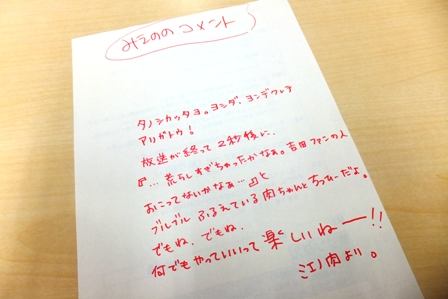 みそのの コメント
タノシカッタヨ。ヨシダ、ヨンデクレテ
アリガトウ!
放送が終って2秒後に、
『… 荒らしすぎちゃったかなぁ。吉田ファンの人
おこってないかなぁ…』と
ブルブル ふるえている肉ちゃんとちっひーだよ。
でもね、でもね、
何でもやっていいって楽しいねー!!
江ノ肉より。